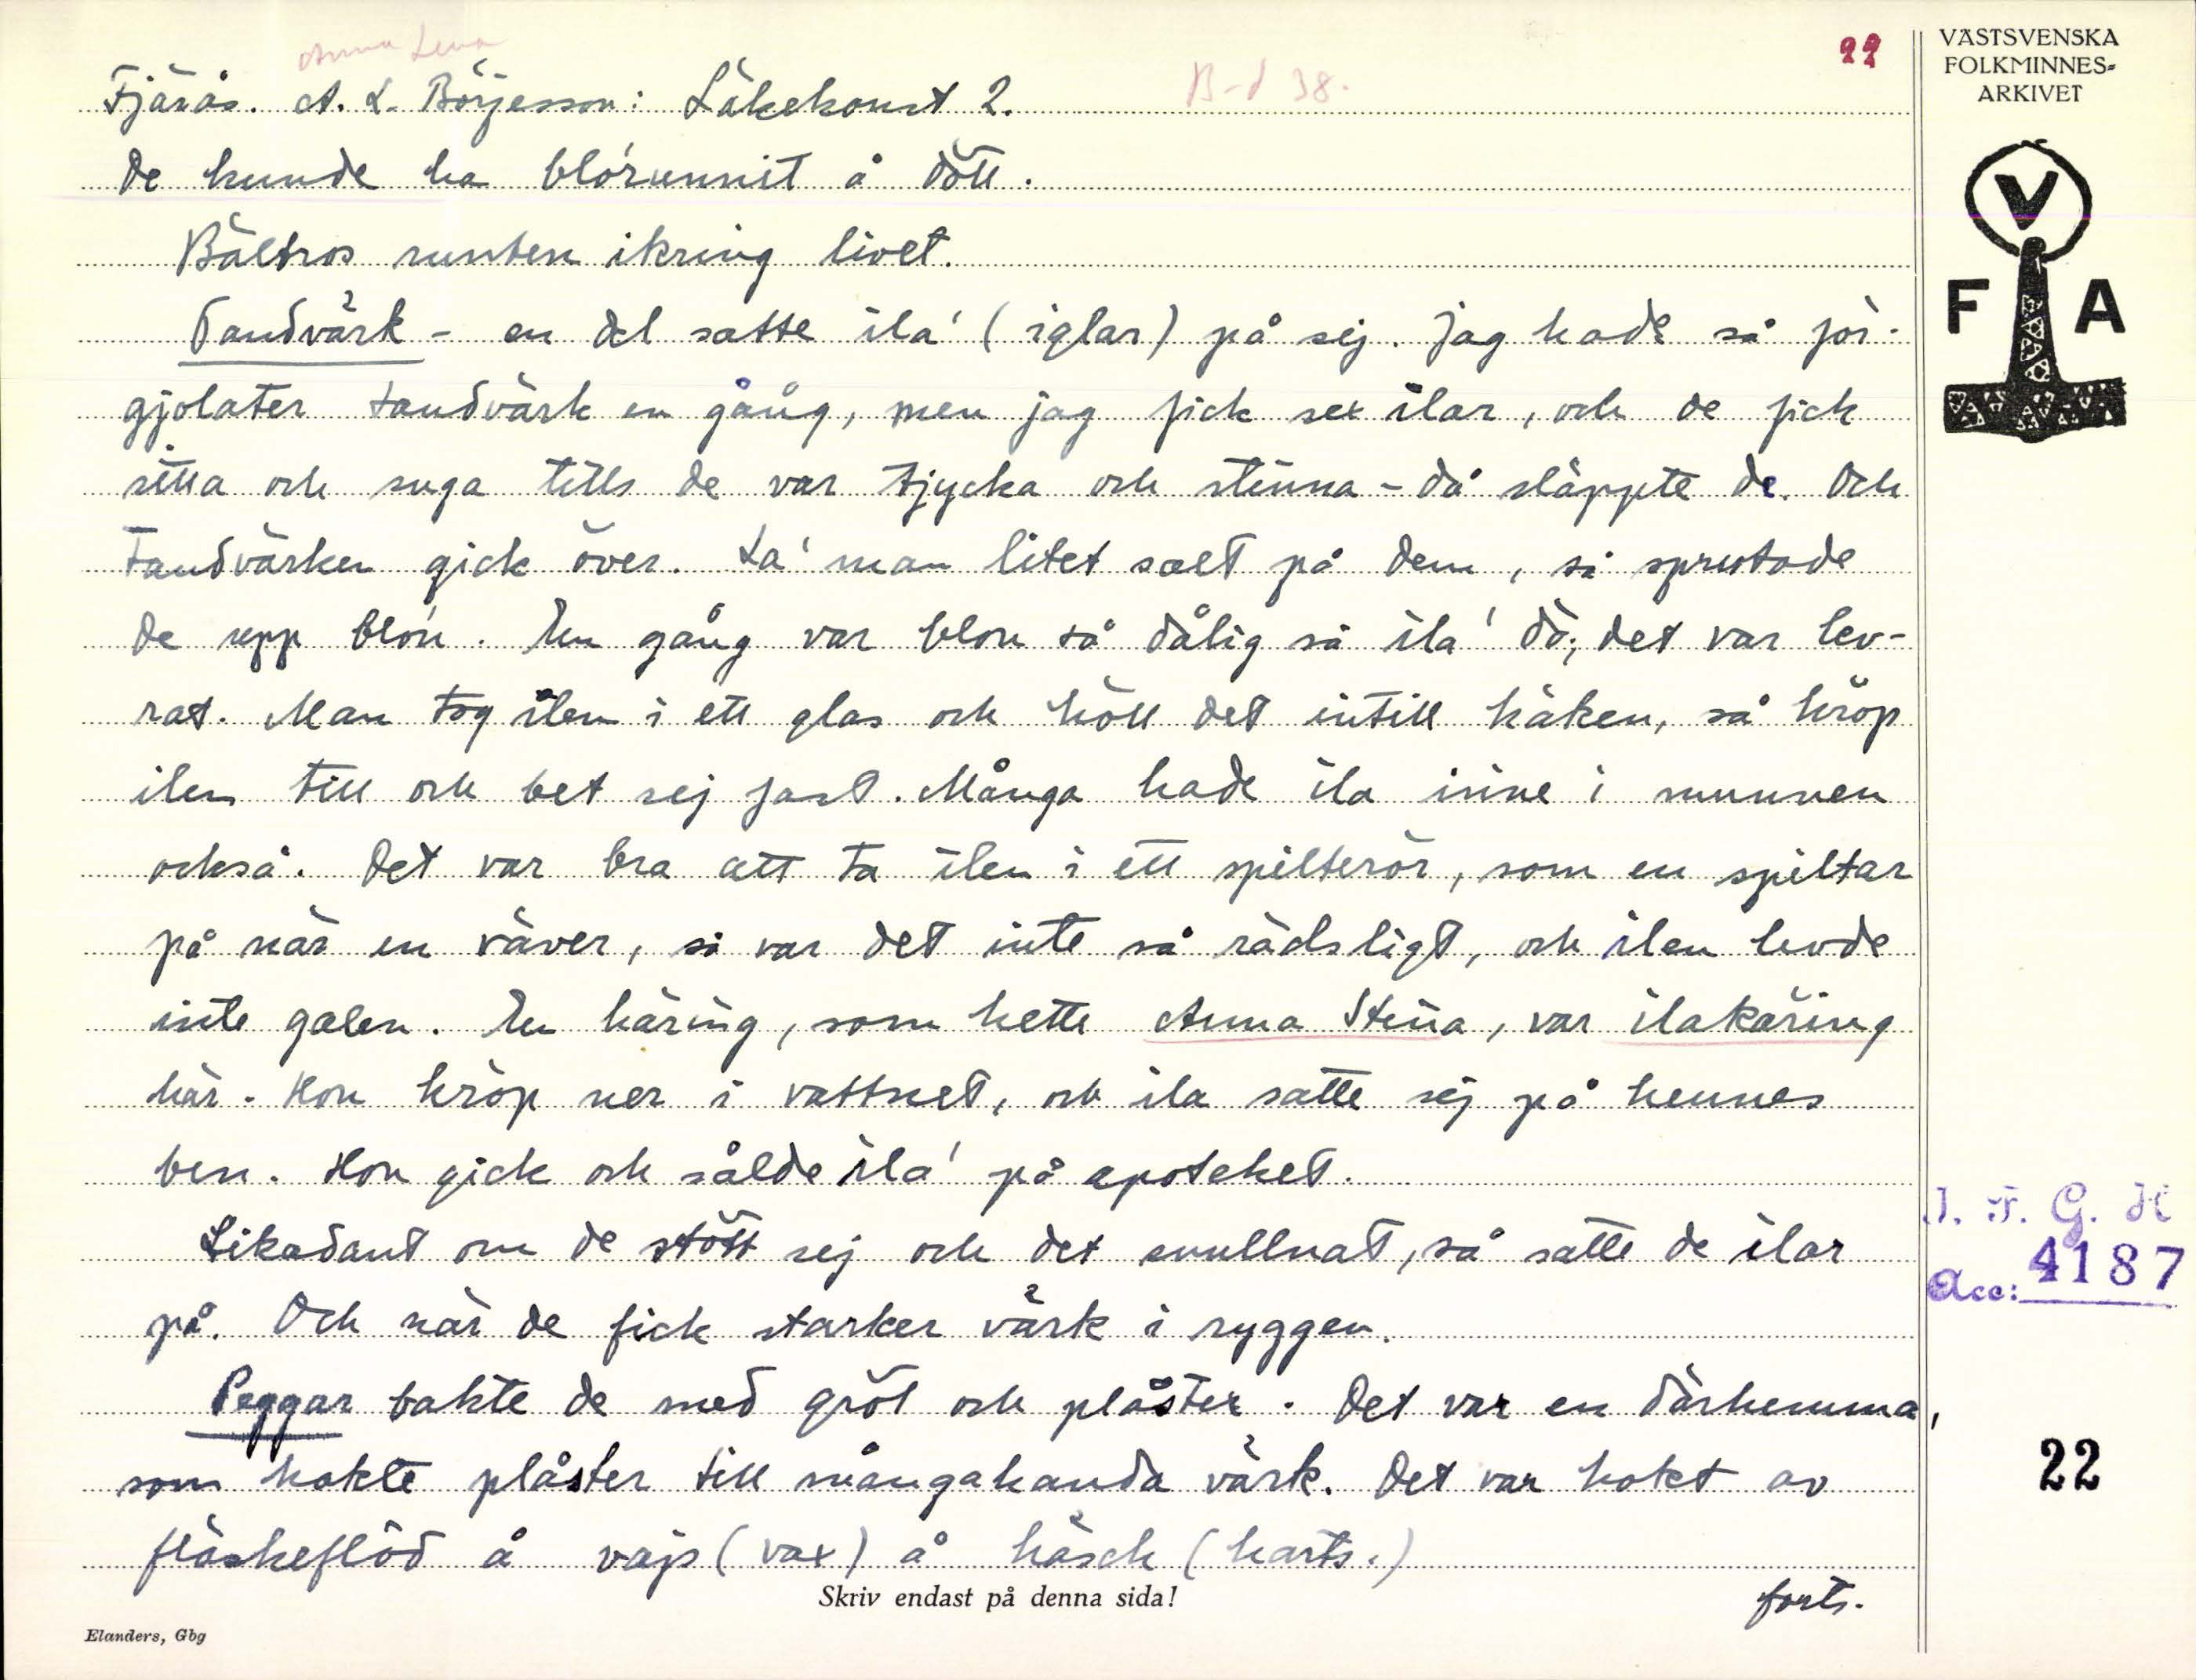 Anna Lena
22
Fjärås. A. L. Börjesson: Läkekonst 2.
B-d 38.
de kunde ha blórunnit å dött.
Bältros runten ikring livet.
Tandvärk - en del satte ila' (iglar) på sej. Jag hade så för-
gjolater tandvärk en gång, men jag fick sex ilar, och de fick
sitta och suga tills de var tjycka och stinna - då släppte de. Och
tandvärken gick över. La' man litet salt på dem, så sprutade
de upp blón. En gång var blon så dålig så ila' dö; det var lev-
rat. Man tog ilen i ett glas och höll det intill häken, så kröp
ilen till och bet sej fast. Många hade ila inne i munnen
också. Det var bra att ta ilen i ett spilterör, som en spiltar
på när en väver, så var det inte så rädsligt, och ilen levde
inte galen. En käring, som hette Anna Stina, var ilakäring
här. Hon kröp ner i vattnet, och ila satte sej på hennes
ben. Hon gick och sålde ila' på apoteket.
Likadant om de stött sej och det svullnat, så satte de ilar
på. Och när de fick starker värk i ryggen.
Peggar bakte de med gröt och plåster. Det var en därhemma,
som kokte plåster till mångahanda värk. Det var kokt av
fläskeflöd å vajs (vax) å håsch (harts.)
forts.
Skriv endast på denna sida!
Elanders, Gbg
VÄSTSVENSKA
FOLKMINNES-
ARKIVET
V
F A
I. F. G. H
Acc: 4187
22